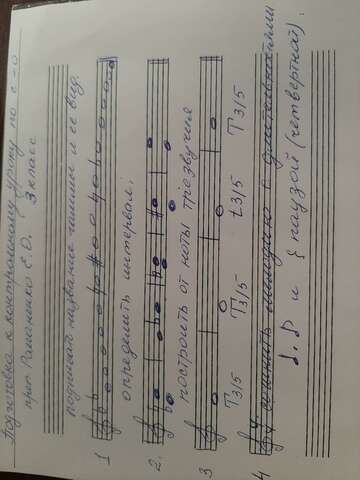 Подготовка к контрольному уроку по с-о
преп. Романенко Е.О. 3 класс
подпиши название гаммы и её вид.
1
определить интервал.
2.
построить от ноты трезвучия
3
Т3/5 Т3/5 t3/5 Т3/5
4 сочинить мелодию с
и паузой (четвертной).